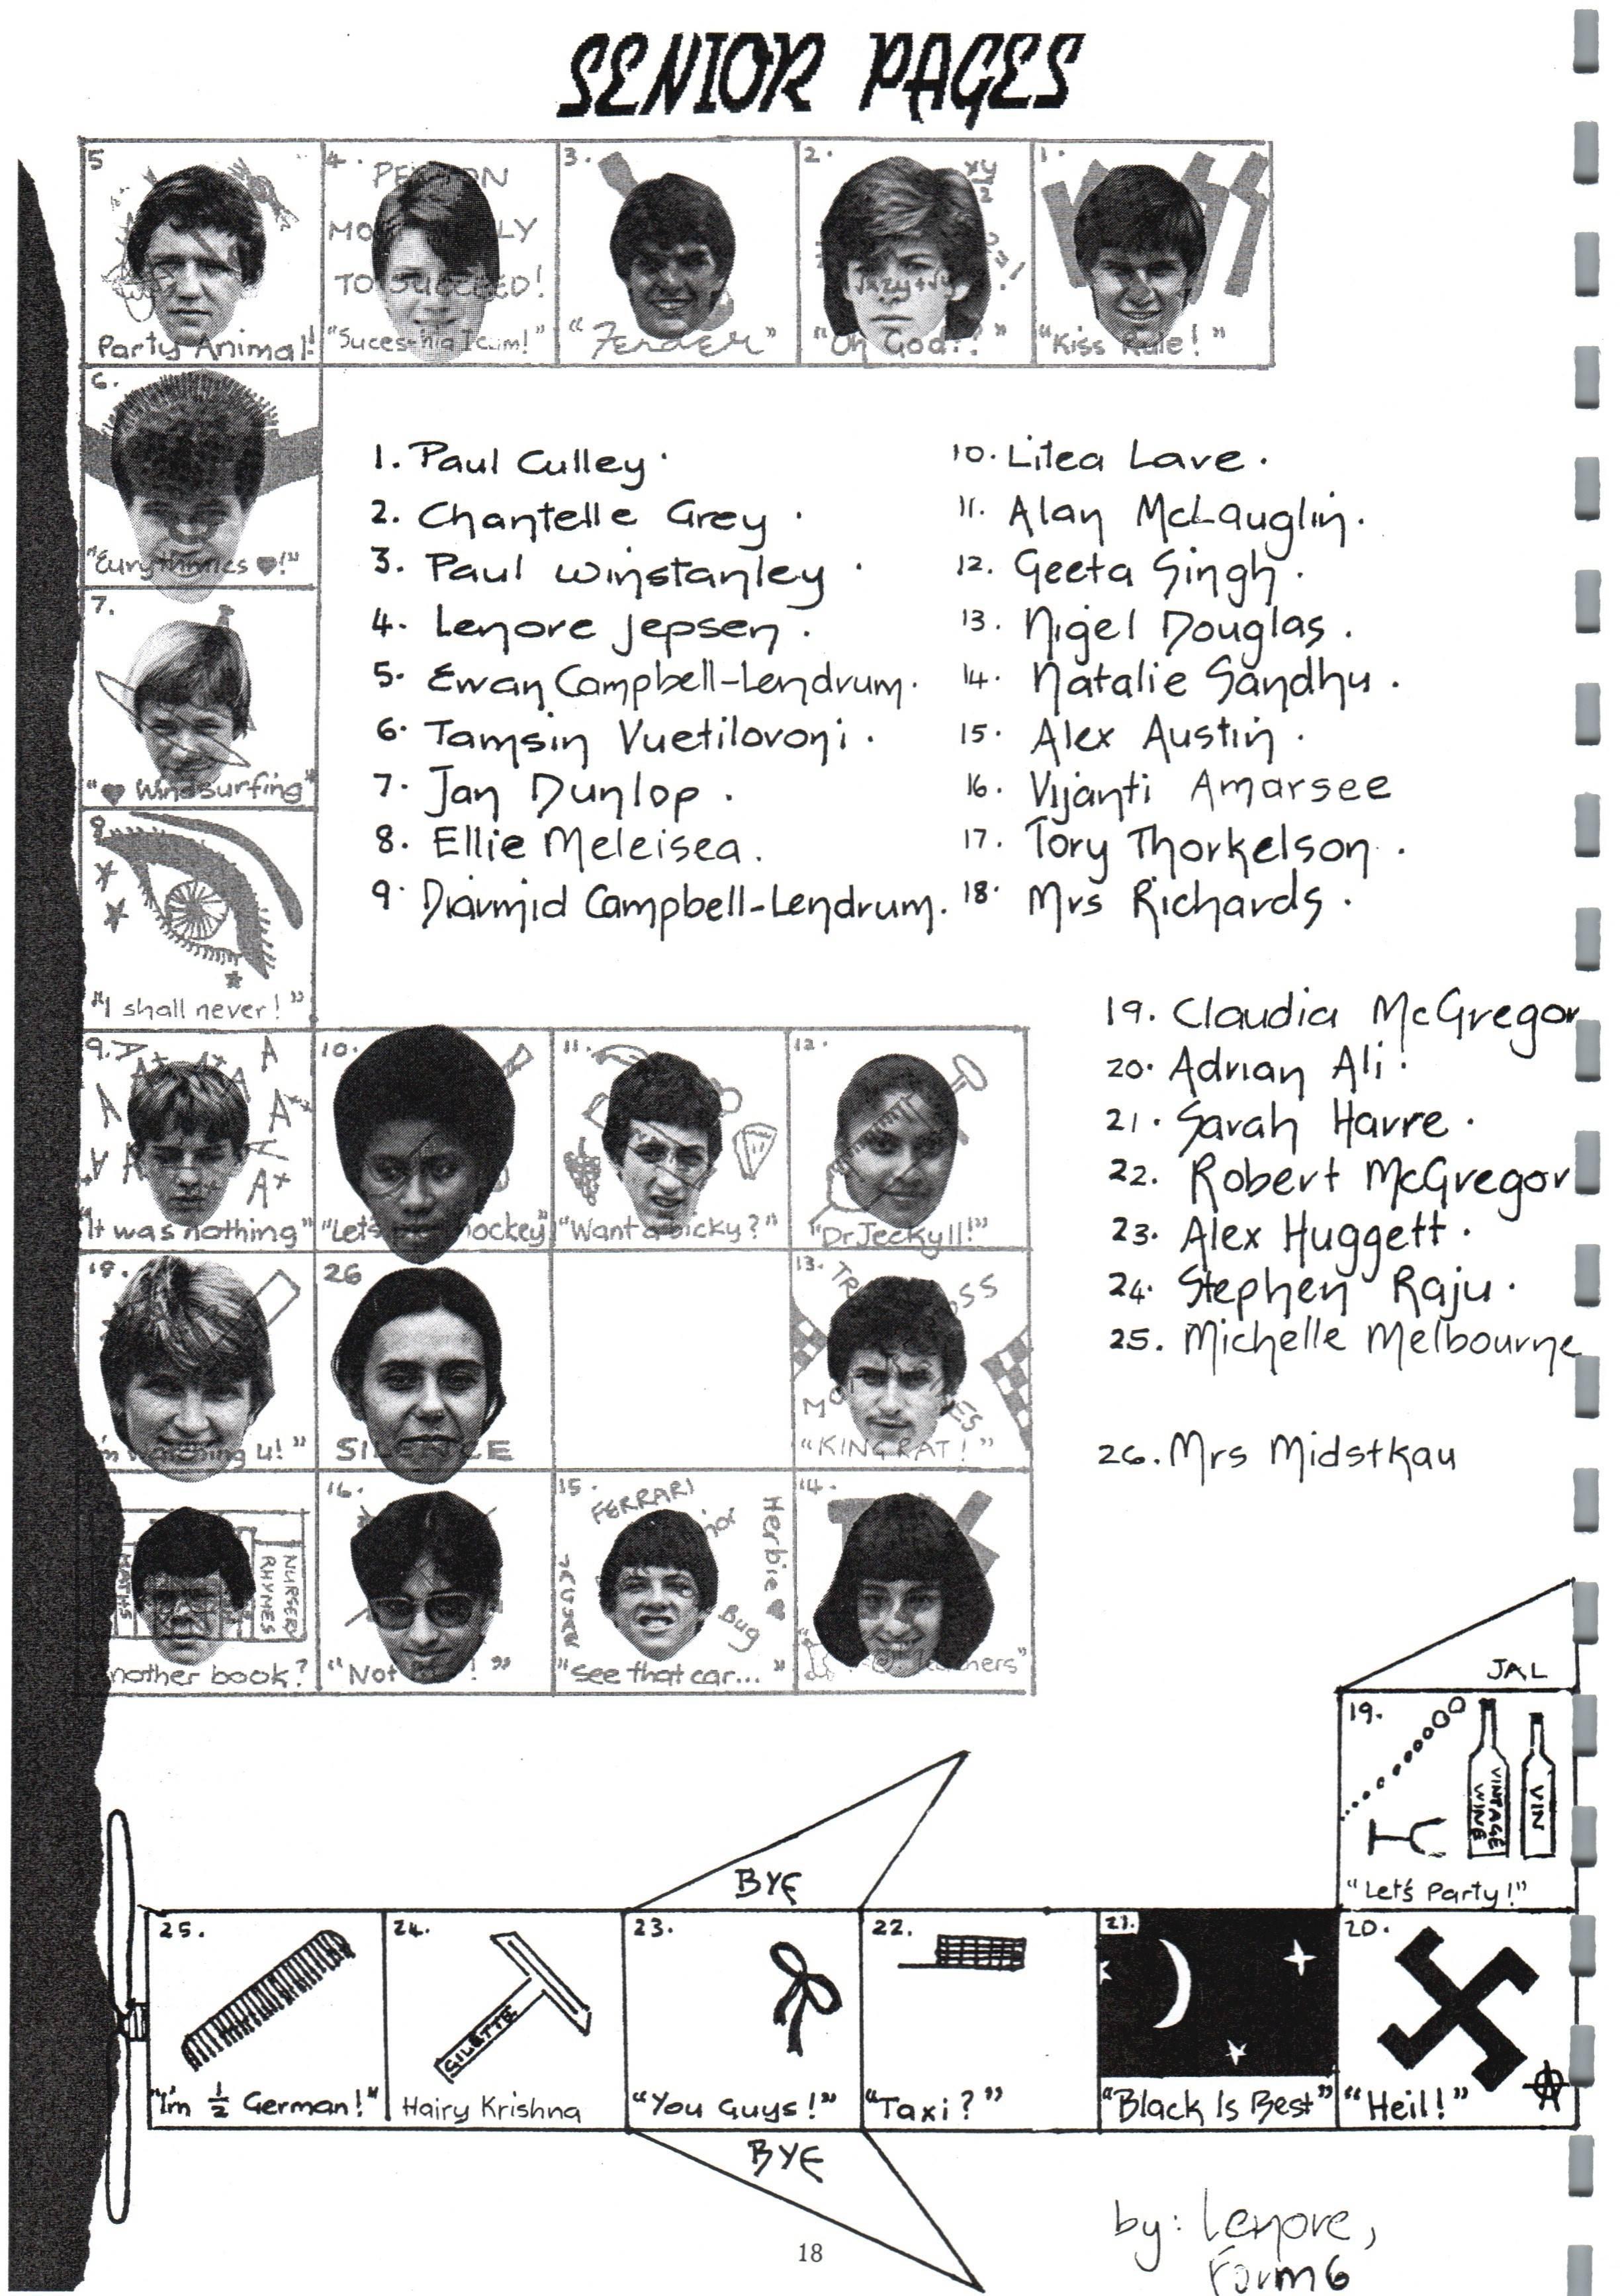 SENIOR PAGES
5
Party Animal!
4.
PERSON
MOST LIKELY
TO SUCCEED!
"Suces-hic I cum!"
3.
"Fender"
2.
xy
2
"Oh God?!"
1.
KISS
"Kiss Rule!"
6.
"Eurythmics ♥!"
7.
"♥ Windsurfing"
8
"I shall never!"
1. Paul Culley.
2. Chantelle Grey.
3. Paul Winstanley.
4. Lenore Jepsen.
5. Ewan Campbell-Lendrum.
6. Tamsin Vuetilovoni.
7. Jan Dunlop.
8. Ellie Meleisea.
9. Diarmid Campbell-Lendrum.
10. Litea Lave.
11. Alan McLauglin.
12. Geeta Singh.
13. Nigel Douglas.
14. Natalie Sandhu.
15. Alex Austin.
16. Vijanti Amarsee
17. Tory Thorkelson.
18. Mrs Richards.
19. Claudia McGregor
20. Adrian Ali.
21. Sarah Harre.
22. Robert McGregor
23. Alex Huggett.
24. Stephen Raju.
25. Michelle Melbourne
26. Mrs Midstkau
9.
A A+ A+ A A A A+ A A A A+
"It was nothing"
10.
"Lets hockey"
11.
"Want a bicky?"
12.
"Dr Jeckyll!"
18.
watching u!"
26
SILENCE
13.
"KING RAT!"
MATHS
NURSERY
RHYMES
nother book?
16.
"Not !"
15.
FERRARI
Herbie ♥
Bug
"See that car..."
14.
JAL
19.
VINTAGE
WINE
VIN
"Let's Party!"
BYE
25.
"I'm ½ German!"
24.
GILETTE
Hairy Krishna
23.
"You Guys!"
22.
"Taxi?"
21.
"Black Is Best"
20.
"Heil!"
BYE
by: Lenore,
Form 6
18